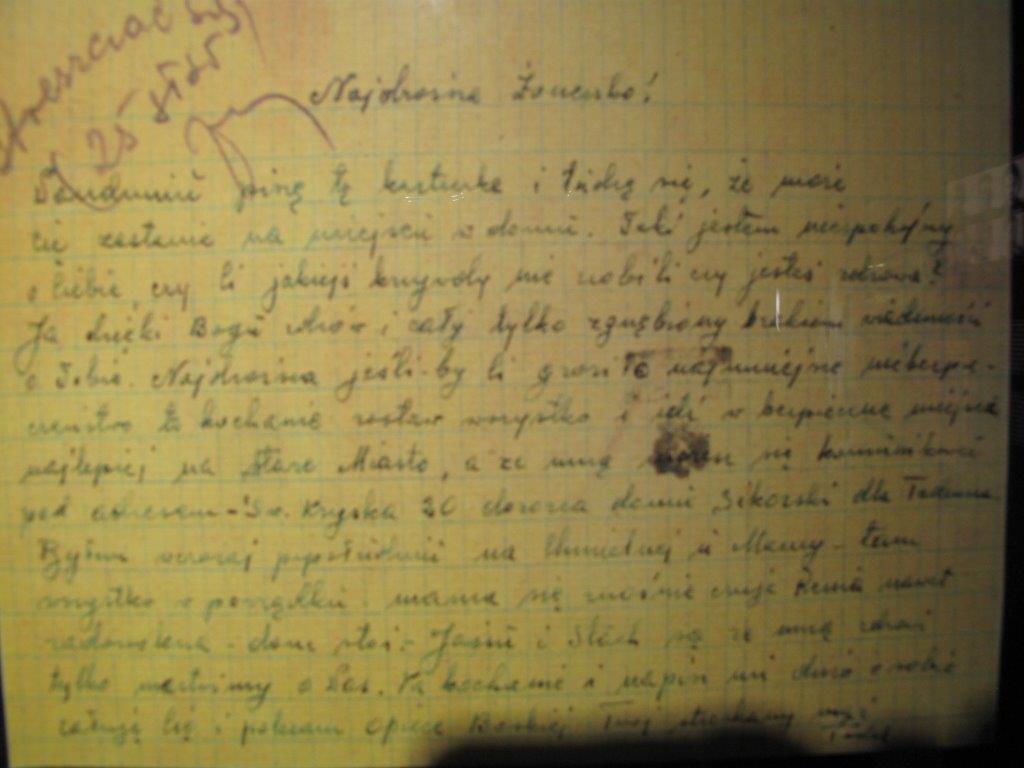 streszczać się
25 słów
Najdroższa Żoneczko!
piszę tę karteczkę i łudzę się, że może
cię zastanie na miejscu w domu. Taki jestem niespokojny
o Ciebie, czy Ci jakiejś krzywdy nie zrobili czy jesteś zdrowa?
Ja dzięki Bogu zdrów i cały tylko zgnębiony brakiem wiadomości
o Tobie. Najdroższa jeśli-by Ci groziło najmniejsze niebezpie-
czeństwo to kochanie zostaw wszystko i idź w bezpieczne miejsce
najlepiej na Stare Miasto, a ze mną możesz się komunikować
pod adresem - Św. Krzyska 20 dozorca domu Sikorski dla Tadeusza
Byłem wczoraj popołudniu na Chmielnej u Mamy - tam
wszystko w porządku mama się znośnie czuje Renia nawet
zadowolona - dom stoi - Jasiu i Stach są ze mną zdrowi
tylko martwimy o Was. Pa kochanie i napisz mi dużo o sobie
całuję Cię i polecam opiece Boskiej Twój stroskany mąż
Tadek